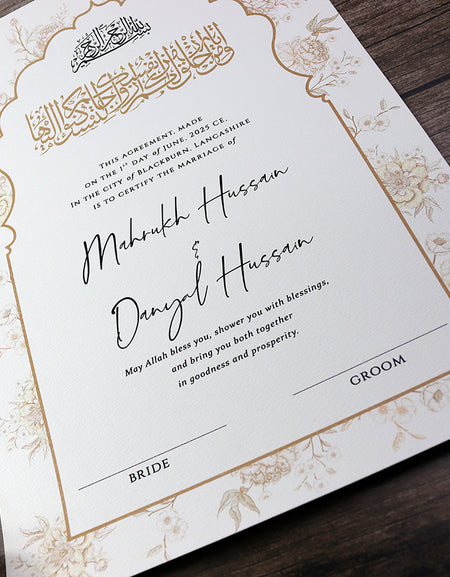 بسم الله الرحمن الرحيم
ومن آياته أن خلق لكم من أنفسكم أزواجا لتسكنوا إليها
THIS AGREEMENT, MADE
ON THE 1ST DAY OF JUNE, 2025 CE,
IN THE CITY OF BLACKBURN, LANCASHIRE
IS TO CERTIFY THE MARRIAGE OF
Mahrukh Hussain
&
Danyal Hussain
May Allah bless you, shower you with blessings,
and bring you both together
in goodness and prosperity.
BRIDE
GROOM